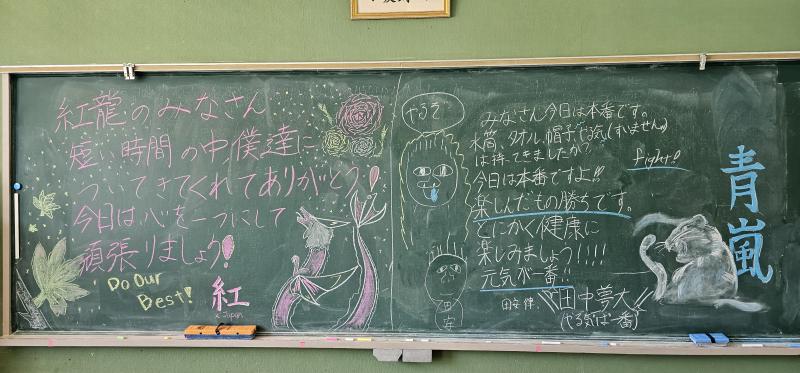 紅龍のみなさん
短い時間の中、僕達に
ついてきてくれてありがとう!
今日は心を一つにして
頑張りましょう!
Do Our
Best!
紅
X Japan
やるぞ
みなさん今日は本番です。
水筒、タオル、帽子やる気(すいません)
は持ってきましたか?
今日は本番ですよ!!
fight!!
楽しんだもの勝ちです。
とにかく健康に
楽しみましょう!!!!
元気が一番!!
田中夢大
やる気は一番
田安
青嵐